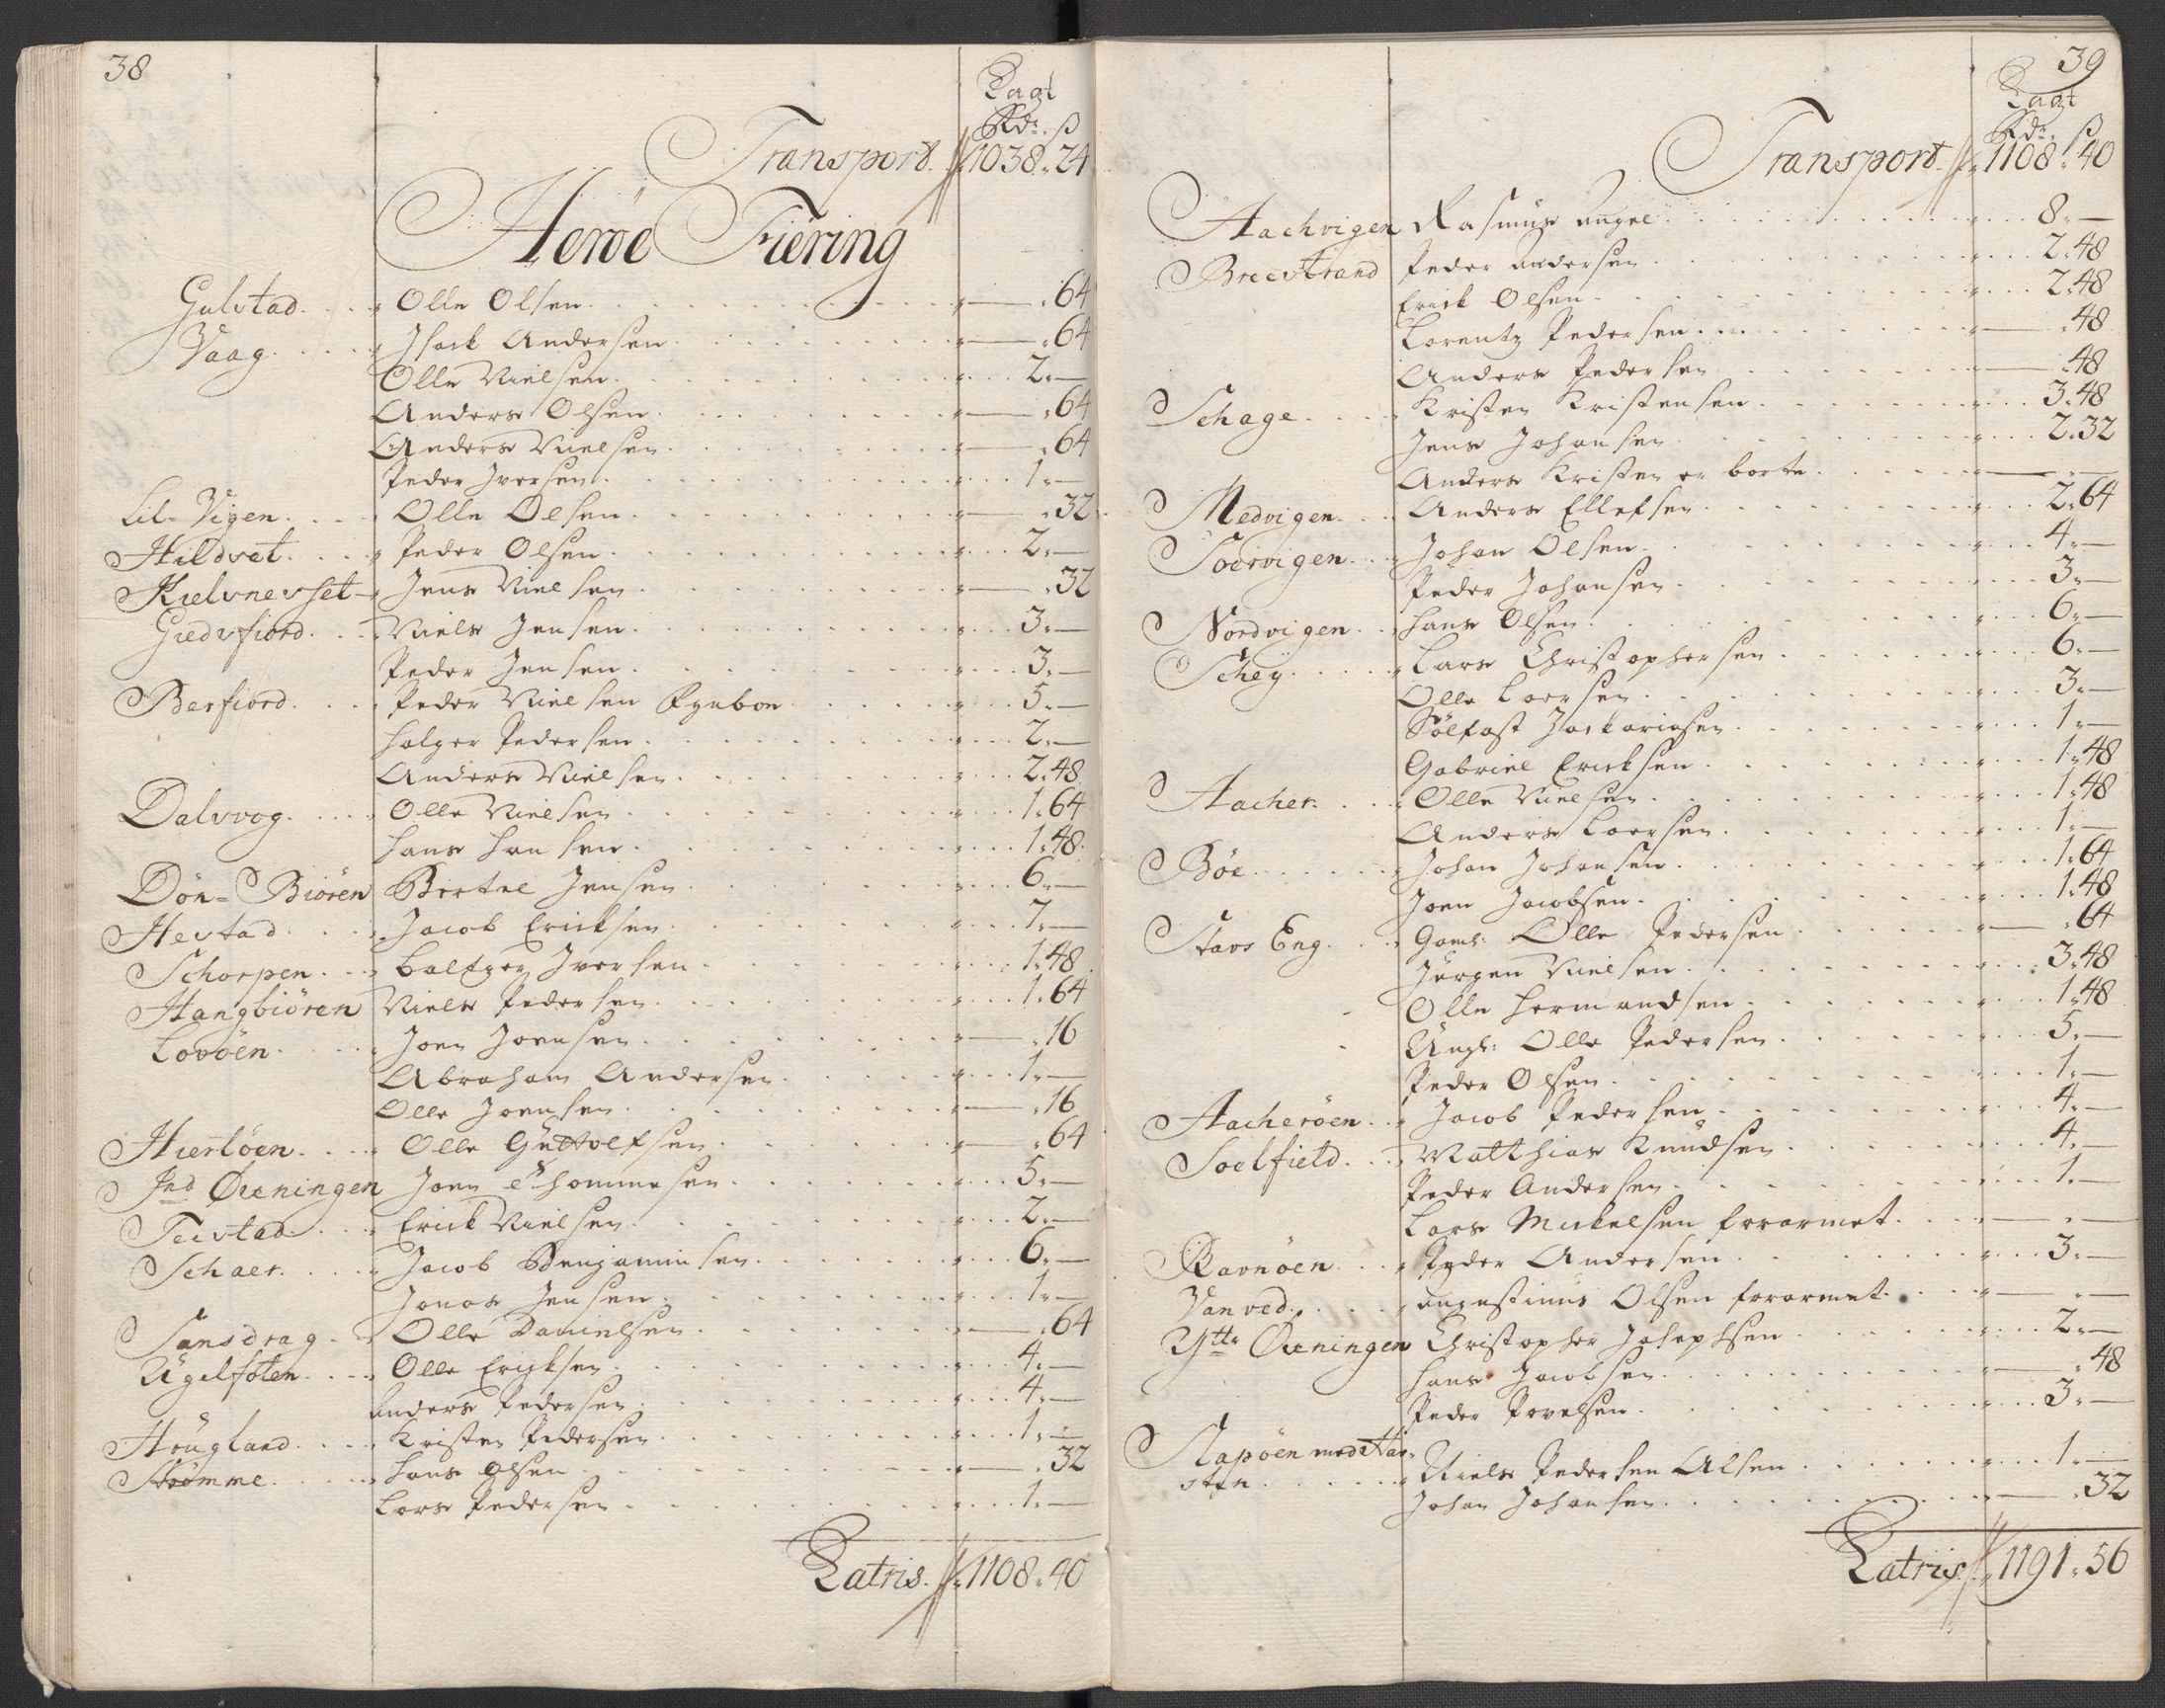 38
Lagt
Rdr. ß
Transport. 1038. 24
Heröe Fiering
Gulstad. Olle Olsen. — . 64
Vaag. Isack Andersen. — . 64
Olle Nielsen. 2. —
Anders Olsen. — . 64
Anders Nielsen. — . 64
Peder Iversen. 1. —
Lil- Vigen. Olle Olsen. — . 32
Hildset. Peder Olsen. 2. —
Kielsnesset Jens Nielsen. — . 32
Giedsfiord. Niels Jensen. 3. —
Peder Jensen. 3. —
Berfiord. Peder Nielsen 5. —
Holger Pedersen. 2. —
Anders Nielsen. 2. 48
Dalsvog. Olle Nielsen. 1. 64
Hans Hansen. 1. 48
Dön- Biören Bertel Jensen. 6. —
Hestad. Jacob Ericksen. 7. —
Schorpen. Baltzer Iversen. 1. 48
Hangbiören Niels Pedersen. 1. 64
Lovöen. Joen Joensen. — . 16
Abraham Andersen. 1. —
Olle Joensen. — . 16
Hiertöen. Olle Guttolfsen. — . 64
Ind Øreningen Joen Thommesen. 5. —
Teistad. Erick Nielsen. 2. —
Schaer. Jacob Benjaminsen. 6. —
Jonas Jensen. 1. —
Sansdrag. Olle Danielsen. — . 64
Ugilsoten. Olle Ericksen. 4. —
Anders Pedersen. 4. —
Høugland. Kristen Pedersen. 1. —
Strömme. Hans Olsen. — . 32
Lars Pedersen. 1. —
Latris. 1108. 40
39
Lagt
Rdr. ß
Transport. 1108. 40
Aachvigen Rasmus Angel. 8. —
Breestrand Peder Andersen. 2. 48
Erick Olsen. 2. 48
Lorentz Pedersen. — . 48
Anders Pedersen. — . 48
Schage. Kristen Kristensen. 3. 48
Jens Johansen. 2. 32
Anders Kristen er borte. — . —
Medvigen. Anders Ellefsen. 2. 64
Soervigen. Johan Olsen. 4. —
Peder Johansen. 3. —
Nordvigen. Hans Olsen. 6. —
Schey. Lars Christophersen. 6. —
Olle Larsen. 3. —
Sölfast Zackariasen. 1. —
Gabriel Ericksen. 1. 48
Aacher. Olle Nielsen. 1. 48
Anders Larsen. 1. —
Böe. Johan Johansen. 1. 64
Joen Jacobsen. 1. 48
Stavs Eng. Gaml: Olle Pedersen. — . 64
Jørgen Nielsen. 3. 48
Olle Hermandsen. 1. 48
Ungl: Olle Pedersen. 5. —
Peder Olsen. 1. —
Aacheröen. Jacob Pedersen. 4. —
Soelfield. Matthias Knudsen. 4. —
Peder Andersen. 1. —
Lars Mickelsen forarmet. — . —
Ravnöen. Peder Andersen. 3. —
Vanved. Augustinus Olsen forarmet. — . —
Ytte Øreningen Christopher Josephsen. 2. —
Hans Jacobsen. — . 48
Peder Povelsen. 3. —
Slapöen med Has-
sten. Niels Pedersen Alsen. 1. —
Johan Johansen. — . 32
Latris. 1191. 56